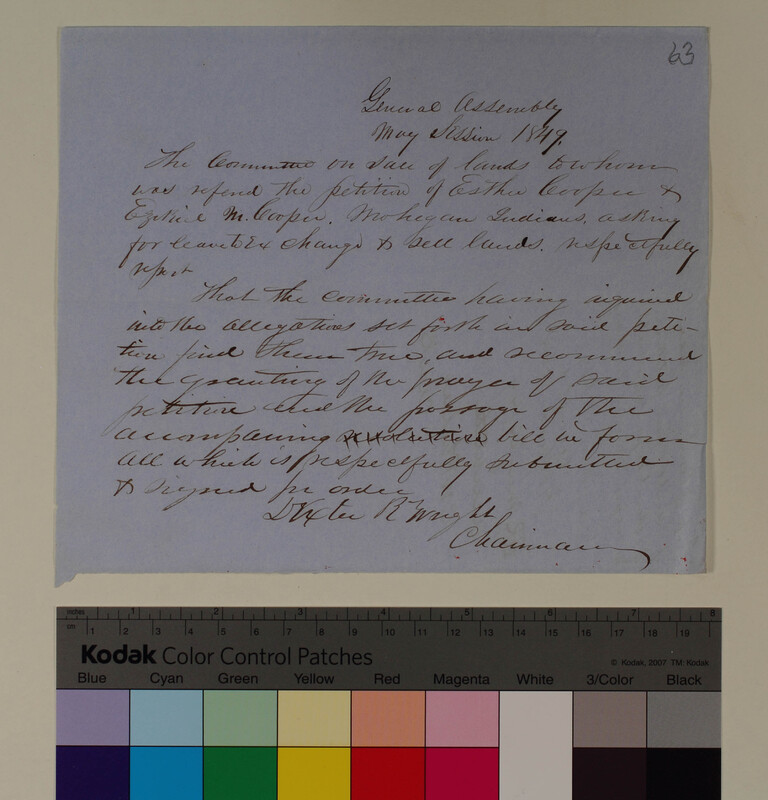 63
General Assembly
May Session 1849.
The Committee on sale of lands to whom
was referd the petition of Esther Cooper &
Ezekiel M. Cooper. Mohegan Indians. asking
for leave to Exchange & sell lands. respectfully
report
That the committee having inquired
into the allegations set forth in said peti-
tion find them true, and recommend
the granting of the prayer of said
petition and the passage of the
accompaning resolution bill in form
all which is respectfully submitted
& signed pr order
Dexter R Wright
Chairman
inches 1 2 3 4 5 6 7 8
cm 1 2 3 4 5 6 7 8 9 10 11 12 13 14 15 16 17 18 19
Kodak Color Control Patches
© Kodak, 2007 TM: Kodak
Blue Cyan Green Yellow Red Magenta White 3/Color Black